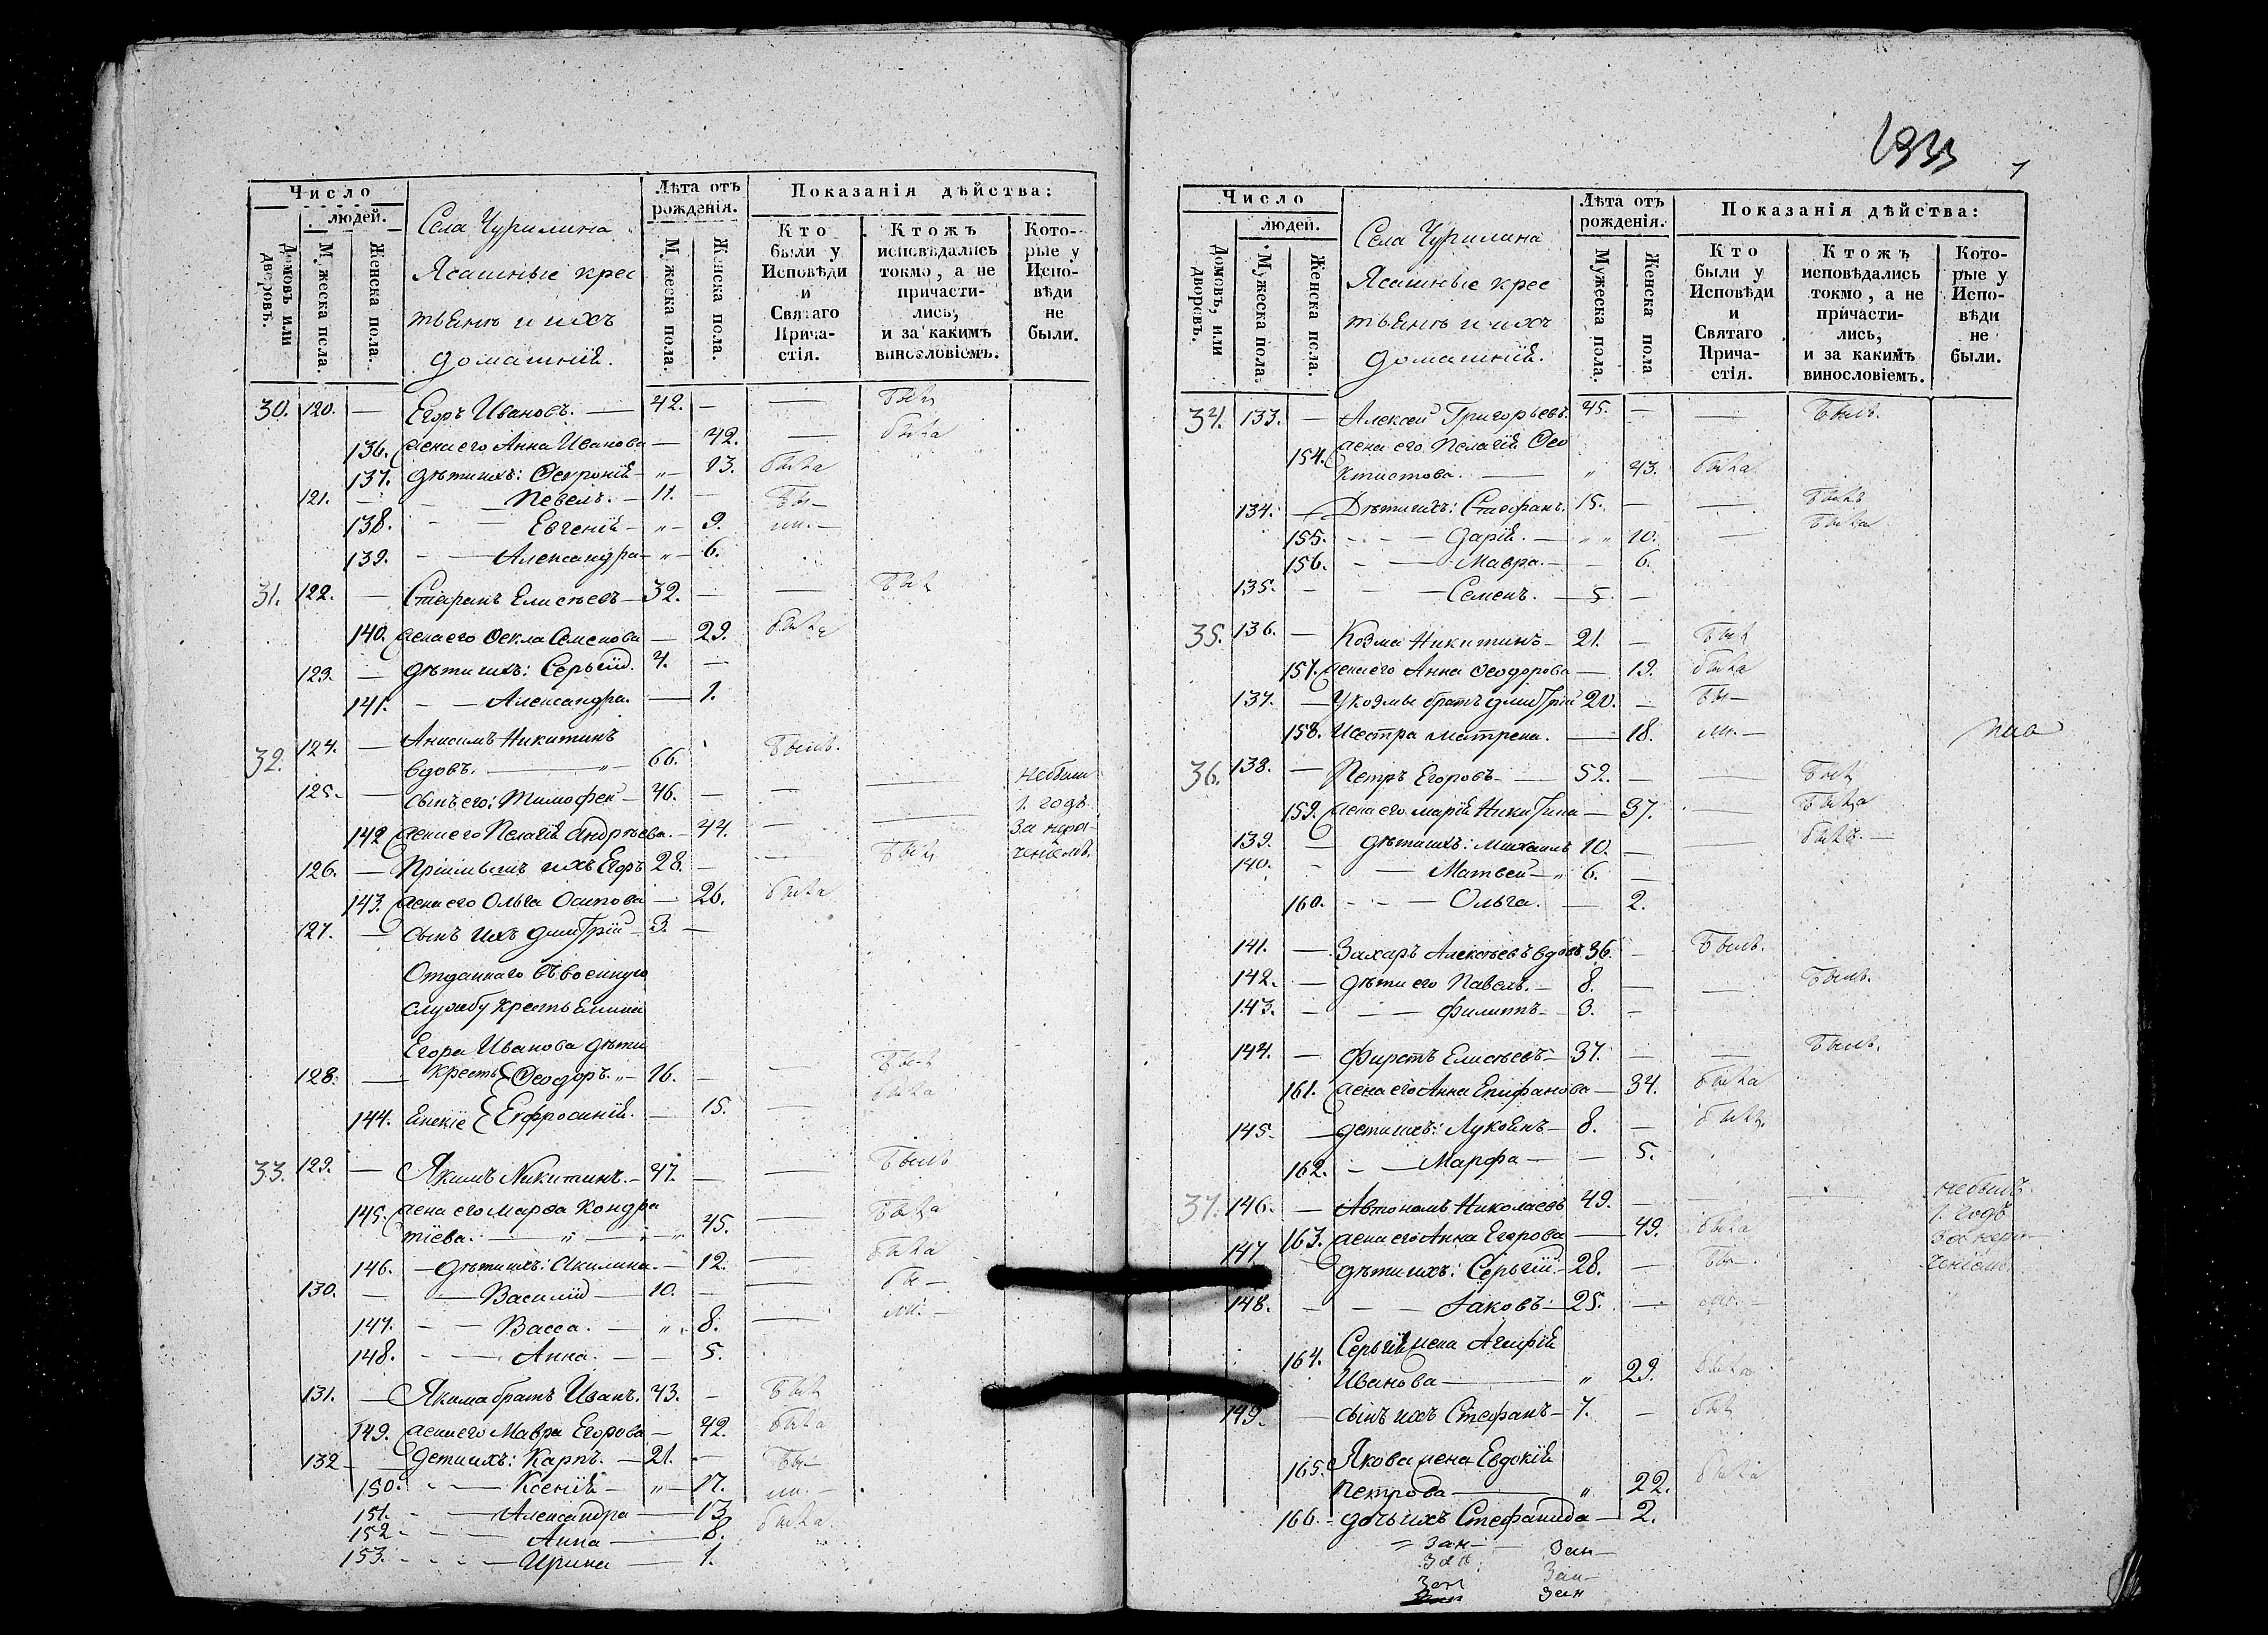 Число
людей.
Домовъ или дворовъ.
Мужеска пола.
Женска пола.
Села Чурилина
Ясашные крес
тьянъ и ихъ
домашнія.
Лѣта отъ рожденія.
Мужеска пола.
Женска пола.
Показанія дѣйства:
Кто были у Исповѣди и Святаго Прича-стія.
Ктожъ исповѣдались токмо, а не причасти-лись, и за какимъ винословіемъ.
Кото-рые у Испо-вѣди не были.
30. 120. — Егоръ Ивановъ. — 42. — — былъ
136. жена его Анна Иванова — 42. — была
137. дѣти ихъ: Февронія — „ — 13. была
121. — — Павелъ. — 11. — бы—
138. — — Евгенія — „ — 9. ли. —
139. — — Александра — „ — 6.
31. 122. — Стефанъ Елисѣевъ — 32. — — былъ
140. жена его Фекла Семенова — 29. была
123. — дѣти ихъ: Сергій. 4. —
141. — — Александра. — 1.
124. — Анисимъ Никитинъ
32. вдовъ. — „ — 66. былъ.
125. — сынъ его: Тимофей — 46. — — — небыли
1. годъ
142 жена его Пелагія Андрѣева. — 44. — — за нера-
126. — Пріимышъ ихъ Егоръ 28. — — былъ
ченіемъ.
143. жена его Ольга Осипова — 26. была
127. — сынъ ихъ Дмитрій — 3. —
Отданнаго въ военную
службу крестьянина
Егора Иванова дѣти
128. — кресть Феодоръ. „ — 16. — — былъ
144. янскіе Евфросинія. — 15. — была
33. 129. — Якимъ Никитинъ. — 47. — — былъ
145. жена его Марфа Кондра
тіева. — „ — „ 45. — была
146. — дѣти ихъ: Акилина. — 12. — была
130. — — Василій — 10. — — бы —
147. — — Васса. — „ 8. — ли. —
148. — — Анна. — — 5.
131. — Якима братъ Иванъ. 43. — былъ
149. жена его Мавра Егорова — 42. была
132 — — дети ихъ: Карпъ. — 21. — бы—
150. — — Ксенія — „ — 17. ли. —
151. — — Александра — 13. была
152 — — Анна — 8.
153. — — Ирина — 1.
7
Число
людей.
Домовъ, или дворовъ.
Мужеска пола.
Женска пола.
Села Чурилина
Ясашные крес
тьянъ и ихъ
домашнія.
Лѣта отъ рожденія.
Мужеска пола.
Женска пола
Показанія дѣйства:
Кто были у Исповѣди и Святаго Прича-стія.
Ктожъ исповѣдались токмо, а не причасти-лись, и за какимъ винословіемъ.
Кото-рые у Испо-вѣди не были.
34. 133. — Алексей Григорьевъ. 45. — — былъ.
154. жена его Пелагія Фео
ктистова. — „ 43. была
134. — Дѣти ихъ: Стефанъ. 15. — — былъ
155. — — Дарія. — „ „ 10. — была
156. — — Мавра. — — 6.
135. — — Семенъ. — 5. —
35. 136. — Козма Никитинъ — 21. — былъ
157. жена его Анна Феодорова — 19. была
137. — У козмы братъ Дмитрій 20. — бы—
158. И сестра Матрена. — 18. ли. —
36. 138. — Петръ Егоровъ — 52. — — былъ
159. жена его Марія Никитина — 37. — была
139. — дѣти ихъ: Михаилъ 10. — — былъ. —
140. — — Матвей — „ 6. —
160. — — Ольга. — 2.
141. — Захаръ Алексѣевъ вдовъ 36. — былъ.
142. — дѣти его Павелъ. — 8. — — былъ.
143. — — Филиппъ — 3. —
144. — Фирсъ Елисѣевъ — 37. — — былъ.
161. жена его Анна Епифанова — 34. была
145. — дети ихъ: Лукоянъ — 8. — былъ.
162. — — Марфа — — 5.
37. 146. — Автономъ Николаевъ 49. — — — небылъ
1. годъ
163. жена его Анна Егорова — 49. была
за нера
147 — дѣти ихъ: Сергій. — 28. — бы—
ченіем.
148. — — Іаковъ — 25. — ли. —
164. Сергія жена Агафія
Иванова — „ 29. была
149. — сынъ ихъ Стефанъ — 7. — былъ
165. Якова жена Евдокія
Петрова — „ 22. была
166. — дочь ихъ Стефанида — 2.
= Зан — Зан —
Зан Зан —
Зан Зан